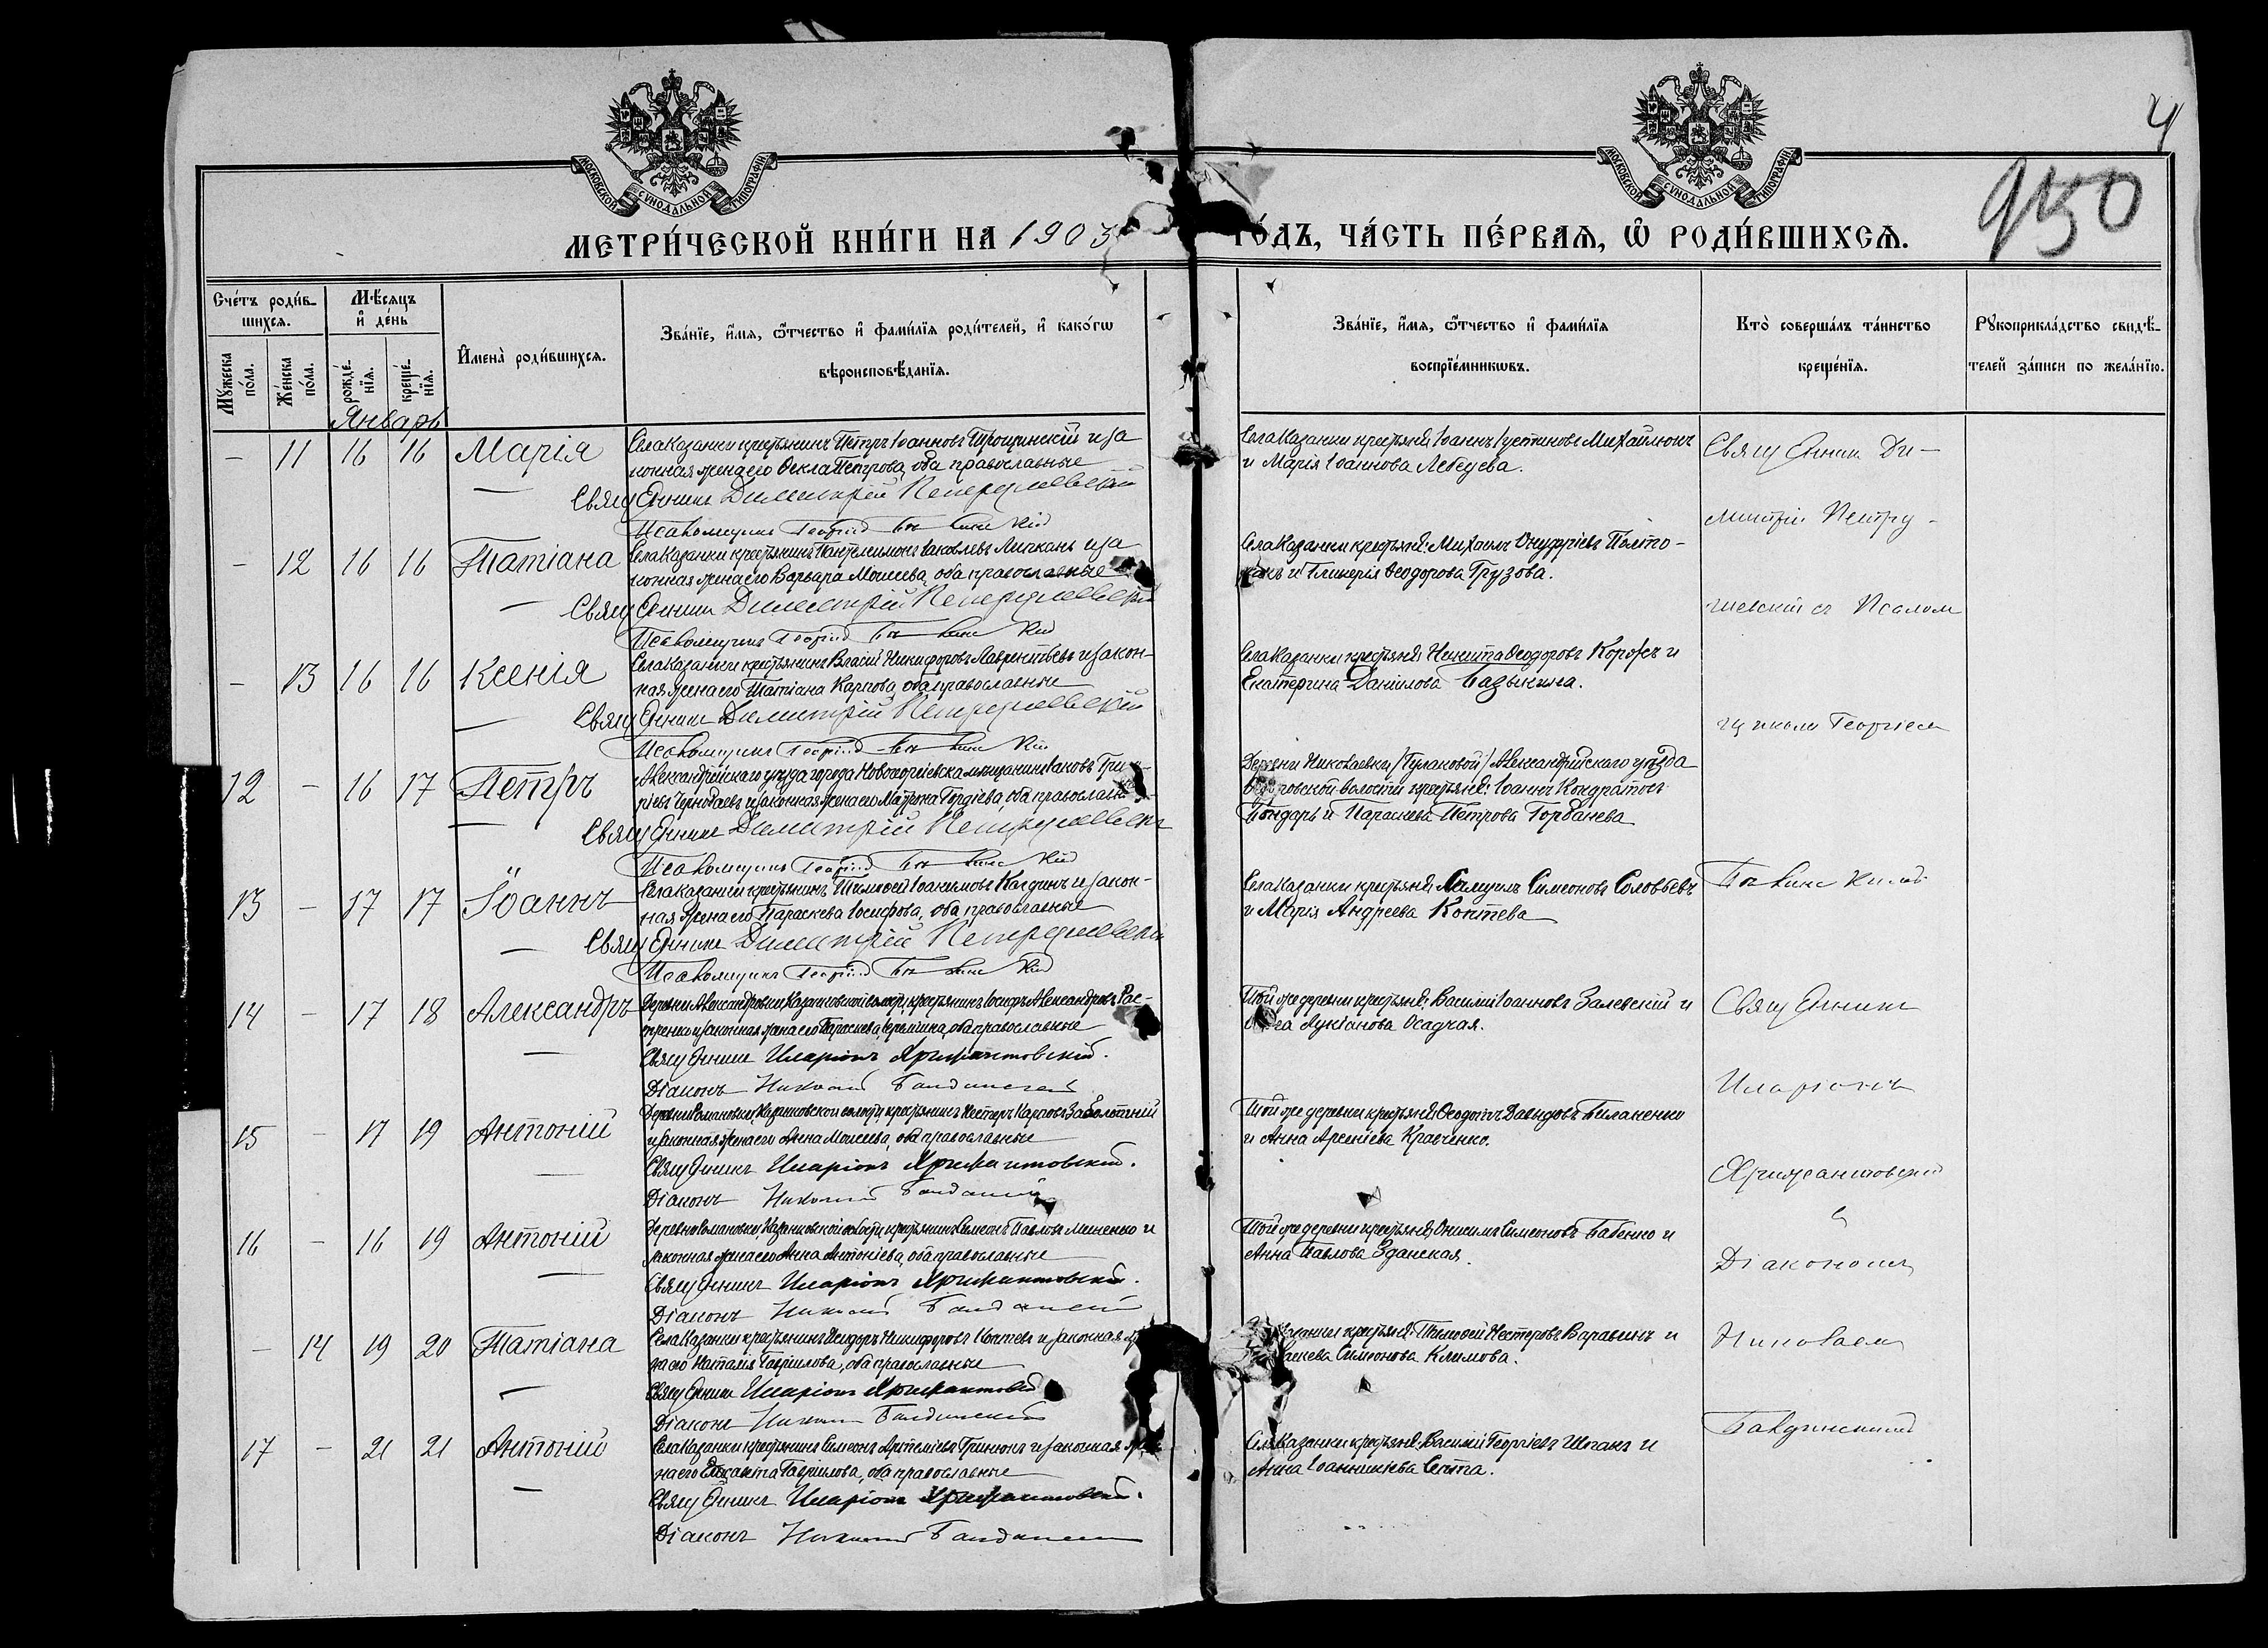 4
950
МОСКОВСКОЙ СѴНОДАЛЬНОЙ ТИПОГРАФІИ
МОСКОВСКОЙ СѴНОДАЛЬНОЙ ТИПОГРАФІИ
МЕТРИ́ЧЕСКОЙ КНИ́ГИ НА 1903 ГО́ДЪ, ЧА́СТЬ ПЕ́РВАѦ, Ѡ РОДИ́ВШИХСѦ.
Сче́тъ роди́в-
шихсѧ.
Мꙋ́жеска по́ла.
Же́нска по́ла.
Мѣ́сѧцъ
и҆ де́нь
рожде́-
нїѧ.
креще́-
нїѧ.
И҆мена̀ роди́вшихсѧ.
Зва́нїе, и҆́мѧ, ѻ҆́тчество и҆ фами́лїѧ роди́телей, и҆ како́гѡ
вѣроисповѣ́данїѧ.
Зва́нїе, и҆́мѧ, ѻ҆́тчество и҆ фами́лїѧ
воспрїе́мникѡвъ.
Кто̀ соверша́лъ та́инство
креще́нїѧ.
Рꙋкоприкла́дство свидѣ́-
телей за́писи по жела́нїю.
Январь
– 11 16 16 Марія
Села Казанки крестьянинъ Петръ Іоанновъ Трощинскій и за
конная жена его Ѳекла Петрова, оба православные
Священникъ Димитрій
Псаломщикъ Георгій
Села Казанки крестьяне: Іоаннъ Іустиновъ Михайлюкъ
и Марія Іоаннова Лебедева.
Священник Ди-
митрій
– 12 16 16 Татіана
Села Казанки крестьянинъ Пантелимонъ Іаковлевъ Личканъ и за
конная жена его Варвара Моисеева, оба православные
Священникъ Димитрій
Псаломщикъ Георгій
Села Казанки крестьяне: Михаилъ Онуфріевъ
и Гликерія Ѳеодорова Грузова.
съ Псалом
– 13 16 16 Ксенія
Села Казанки крестьянинъ Власій Никифоровъ Лаврентьевъ и закон-
ная жена его Татіана Карпова, оба православные
Священникъ Димитрій
Псаломщикъ Георгій
Села Казанки крестьяне: Никита Ѳеодоровъ Коржъ и
Екатерина Даніилова Базыкина.
щикомъ Георгіем
12 – 16 17 Петръ
Александрійскаго уезда города Новогеоргіевска мещанинъ Іаковъ Гри-
ріевъ Чернобаевъ и законная жена его Матрона Гордіева, оба православн
Священникъ Димитрій
Псаломщикъ Георгій
Деревни Николаевки /Гулаковой/ Александрійскаго уезда
волости крестьяне: Іоаннъ Кондратовъ
Бондарь и Параскева Петрова Горбанева
13 – 17 17 Іоаннъ
Села Казанки крестьянинъ Тимоѳей Іоакимовъ и закон-
ная жена его Параскева Іосифова, оба православные
Священникъ Димитрій
Псаломщикъ Георгій
Села Казанки крестьяне: Самуилъ Симеоновъ Соловьевъ
и Марія Андреева Коптева
14 – 17 18 Александръ
Деревни Александровки, Казанковской волости, крестьянинъ Іосифъ Александровъ Рас-
и законная жена его Параскева, оба православные
Священникъ Иларіонъ Хрисантовскій.
Діаконъ Николай Балдинскій
Той же деревни крестьяне: Василій Іоанновъ Залевскій и
Лукіанова Осадчая.
Священникъ
Иларіонъ
15 – 17 19 Антоній
Деревни Романовки, Казанковской волости, крестьянинъ Несторъ Карповъ Заболотній
и законная жена его Анна Моисеева, оба православные
Священникъ Иларіонъ Хрисантовскій.
Діаконъ Николай Балдинскій
Той же деревни крестьяне: Ѳеодотъ Давидовъ Биланенко
и Анна Арсеніева Кравченко.
Хрисантовскій
съ
16 – 16 19 Антоній
Деревни Романовки, Казанковской волости, крестьянинъ Симеонъ Павловъ и
законная жена его Анна Антоніева, оба православные
Священникъ Иларіонъ Хрисантовскій.
Діаконъ Николай Балдинскій
Той же деревни крестьяне: Онисимъ Симеоновъ Бабенко и
Анна Павлова Зданская.
Діакономъ
– 14 19 20 Татіана
Села Казанки крестьянинъ Исидоръ Никифоровъ Коптевъ и законная же
на его Наталія Гавріилова, оба православные
Священникъ Иларіонъ Хрисантовскій
Діаконъ Николай Балдинскій
Казанки крестьяне: Тимоѳей Несторовъ Варавинъ и
Симеонова Климова.
Николаем
17 – 21 21 Антоній
Села Казанки крестьянинъ Симеонъ Артеміевъ Гринюкъ и законная же
на его Гавріилова, оба православные
Священникъ Иларіонъ Хрисантовскій.
Діаконъ Николай Балдинскій
Села Казанки крестьяне: Василій Георгіевъ и
Анна Іоанникіева
Балдинскимъ